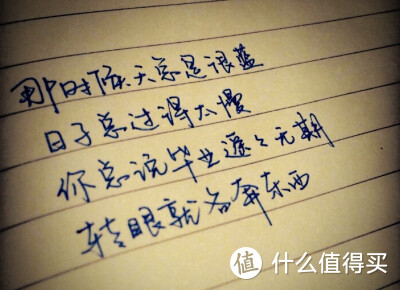 那时候天总是很蓝
日子总过得太慢
你总说毕业遥遥无期
转眼就各奔东西
值 什么值得买